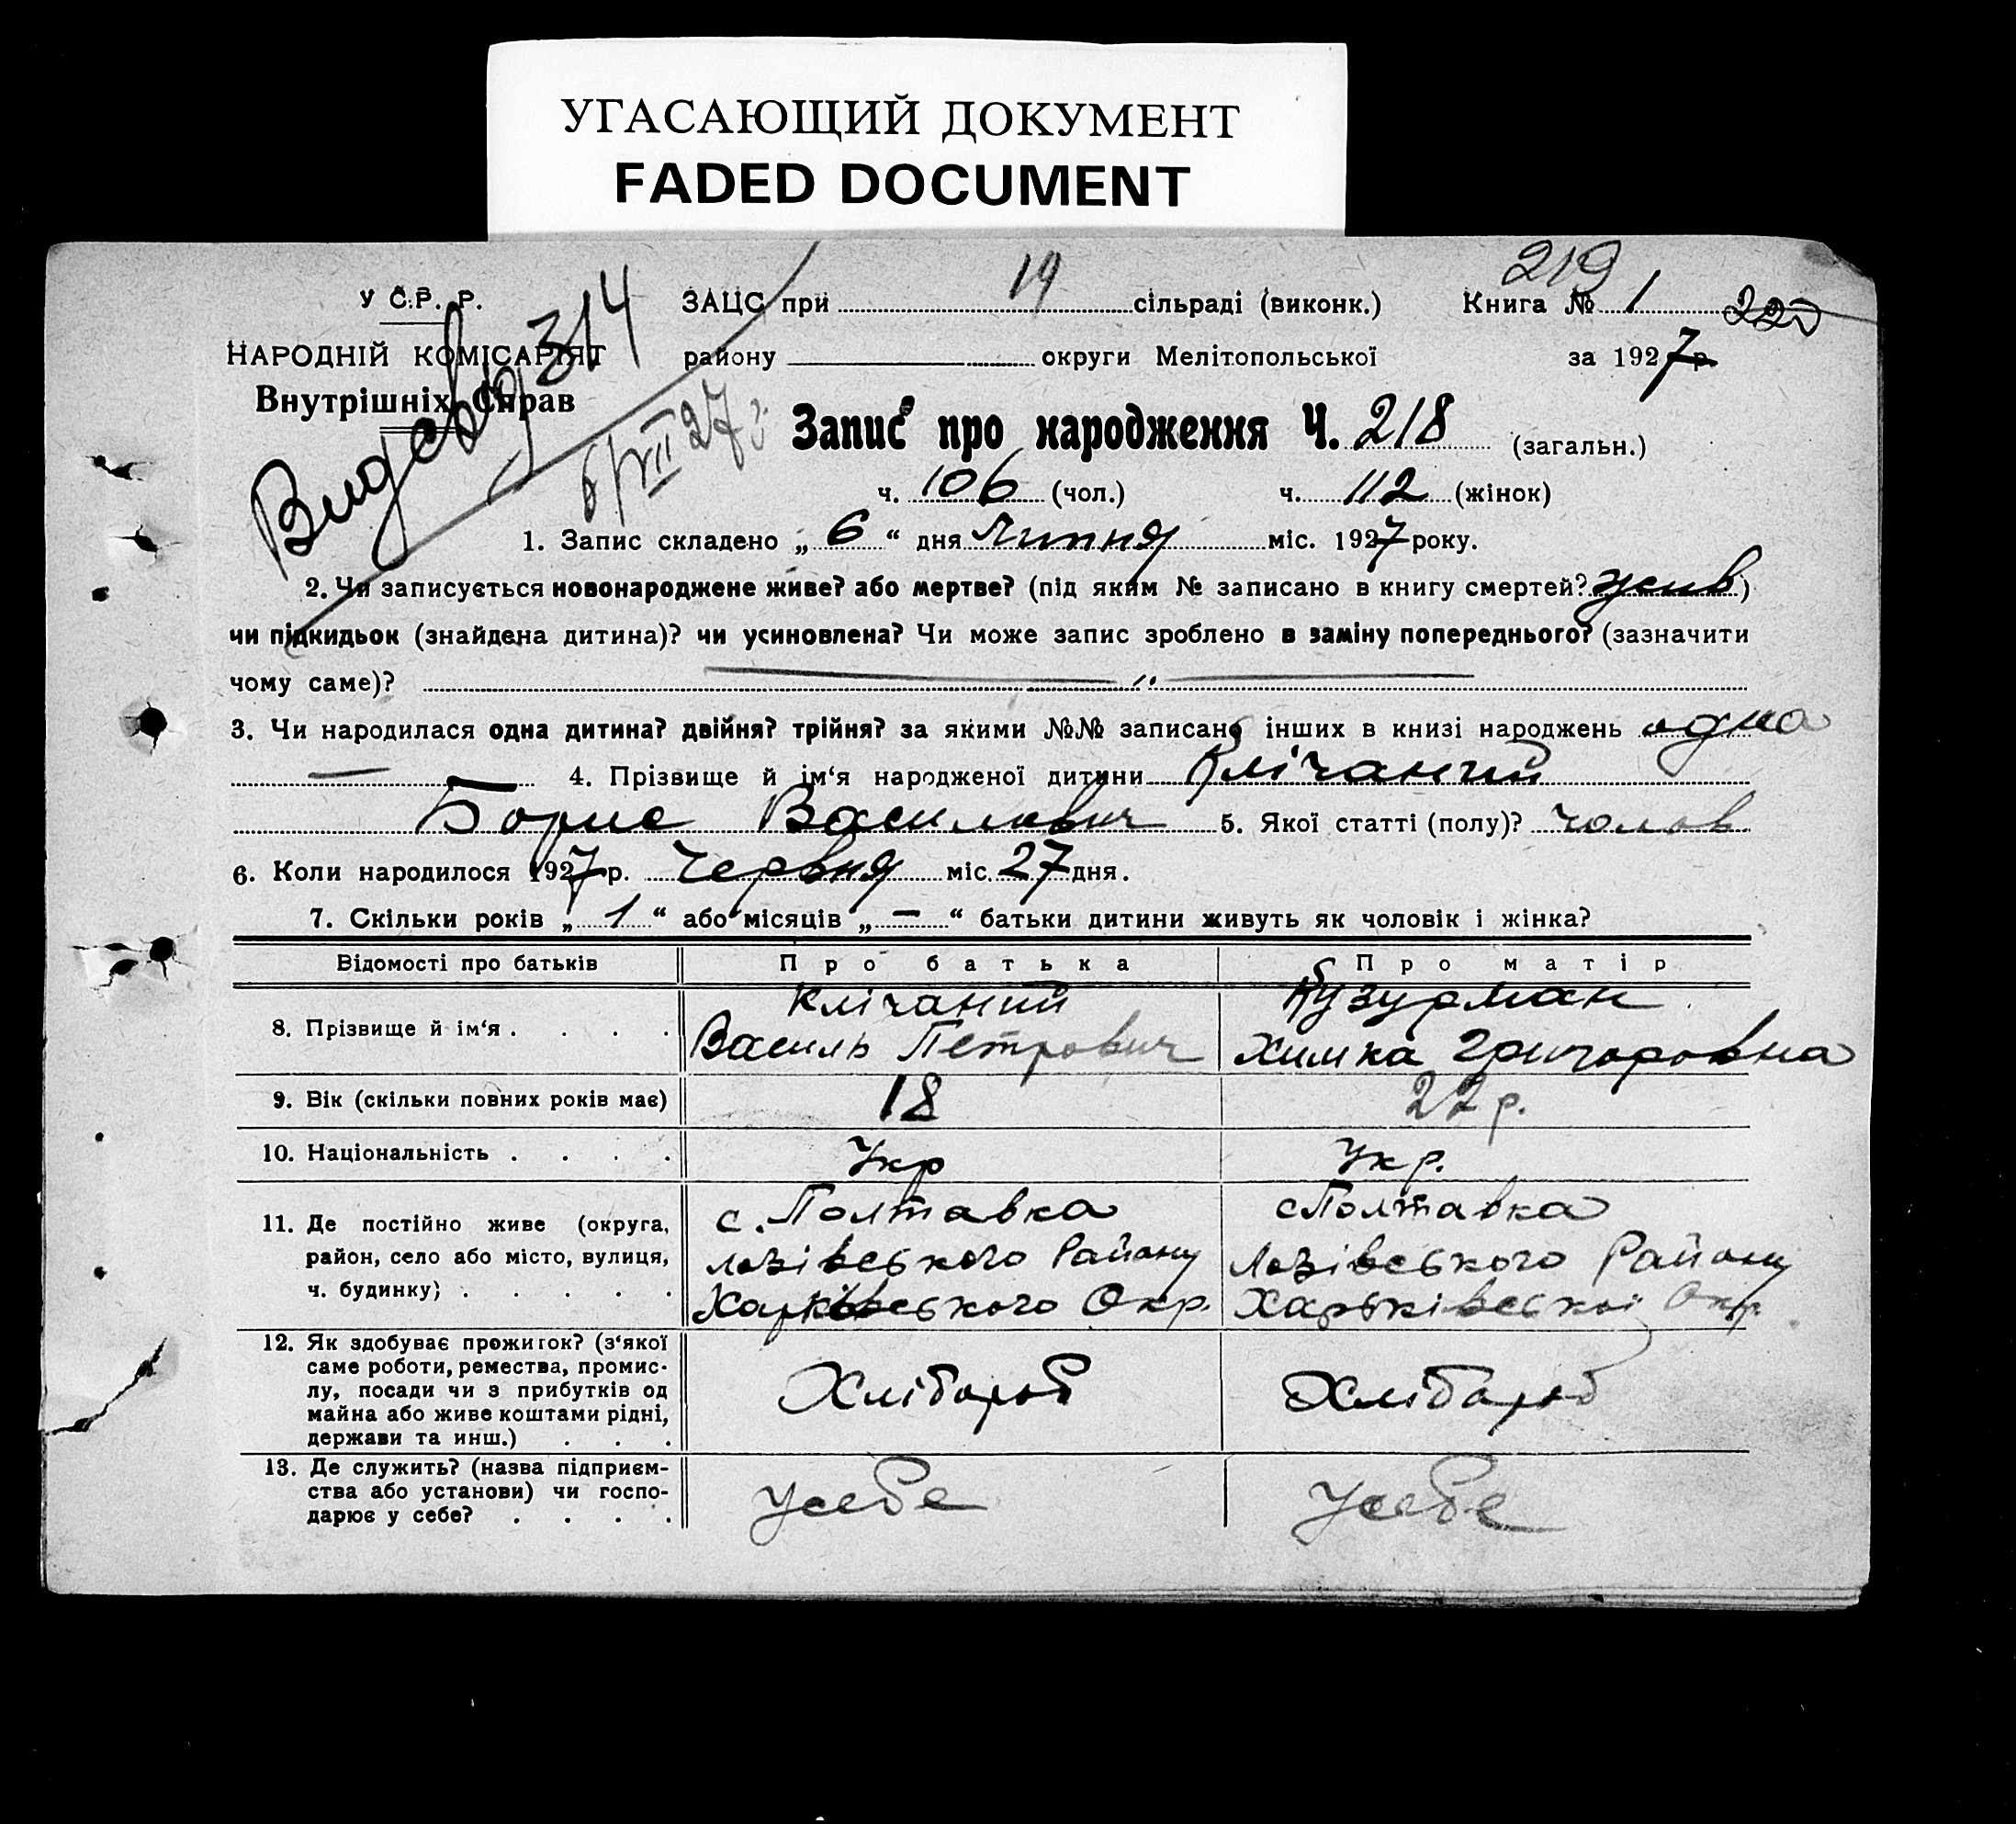 УГАСАЮЩИЙ ДОКУМЕНТ
FADED DOCUMENT
219
У С.Р. Р. ЗАЦС при 19 сільраді (виконк.) Книга № 1 220
НАРОДНІЙ КОМІСАРІЯТ району округи Мелітопольської за 1927 р.
Внутрішніх Справ
314
6/VII 27 г.
Запис про народження Ч. 218 (загальн.)
ч. 106 (чол.) ч. 112 (жінок)
1. Запис складено „ 6 “ дня Липня міс. 1927 року.
2. Чи записується новонароджене живе? або мертве? (під яким № записано в книгу смертей? жив)
чи підкидьок (знайдена дитина)? чи усиновлена? Чи може запис зроблено в заміну попереднього? (зазначити
чому саме)? — „ —
3. Чи народилася одна дитина? двійня? трійня? за якими №№ записано інших в книзі народжень одна
— 4. Прізвище й ім‘я народженої дитини Клічаний
Борис Василович 5. Якої статті (полу)? чолов
6. Коли народилося 1927 р. Червня міс. 27 дня.
7. Скільки років „ 1 “ або місяців „ — “ батьки дитини живуть як чоловік і жінка?
Відомості про батьків Про батька Про матір
8. Прізвище й ім‘я . . . . Клічаний Кузурман
Василь Петрович Химка Григоровна
9. Вік (скільки повних років має) 18 22 р.
10. Національність . . . . Укр Укр.
11. Де постійно живе (округа, с. Полтавка с Полтавка
район, село або місто, вулиця, Лозівського Району Лозівського Району
ч. будинку) . . . . . Харківського Окр. Харьківської Окр.
12. Як здобуває прожиток? (з‘якої
саме роботи, ремества, промис-
лу, посади чи з прибутків од Хлібороб Хлібороб
майна або живе коштами рідні,
держави та инш.) . . .
13. Де служить? (назва підприєм-
ства або установи) чи госпо- Усебе Усебе
дарює у себе? . . . .